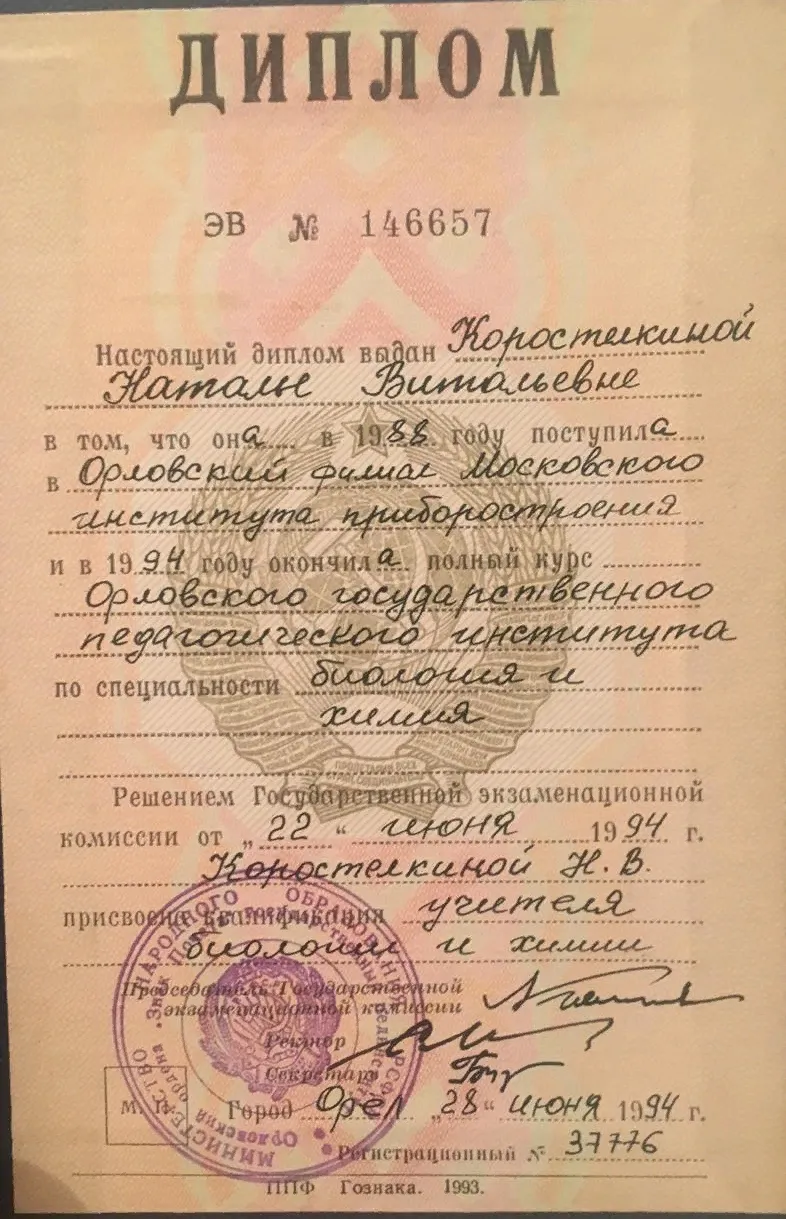 ДИПЛОМ
ЭВ № 146657
Настоящий диплом выдан Коростелкиной
Наталье Витальевне
в том, что она в 1988 году поступила
в Орловский филиал Московского
института приборостроения
и в 1994 году окончила полный курс
Орловского государственного
педагогического института
по специальности биология и
химия
ПРОЛЕТАРИИ ВСЕХ
Решением Государственной экзаменационной
комиссии от „22“ июня 1994 г.
Коростелкиной Н. В.
присвоена квалификация учителя
биологии и химии
Председатель Государственной
экзаменационной комиссии
Ректор
Секретарь
М. П.
Город Орел „28“ июня 1994 г.
Регистрационный № 37776
МИНИСТЕРСТВО НАРОДНОГО ОБРАЗОВАНИЯ РСФСР
ордена „Знак Почета" государственный
Орловский
ППФ Гознака. 1993.